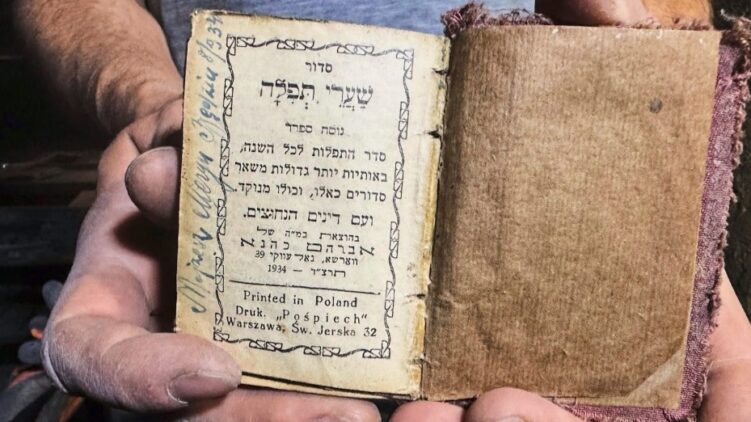 סדור
שַׁעֲרֵי תְּפִלָּה
נוסח ספרד
סדר התפלות לכל השנה,
באותיות יותר גדולות משאר
סדורים כאלו, וכולו מנוקד,
ועם דינים הנחוצים.
בהוצאת במ״ה של
אברהם כהנא
ווארשא, נאלעווקי 39
תרצ״ד — 1934
Printed in Poland
Druk. „Pośpiech"
Warszawa, Św. Jerska 32